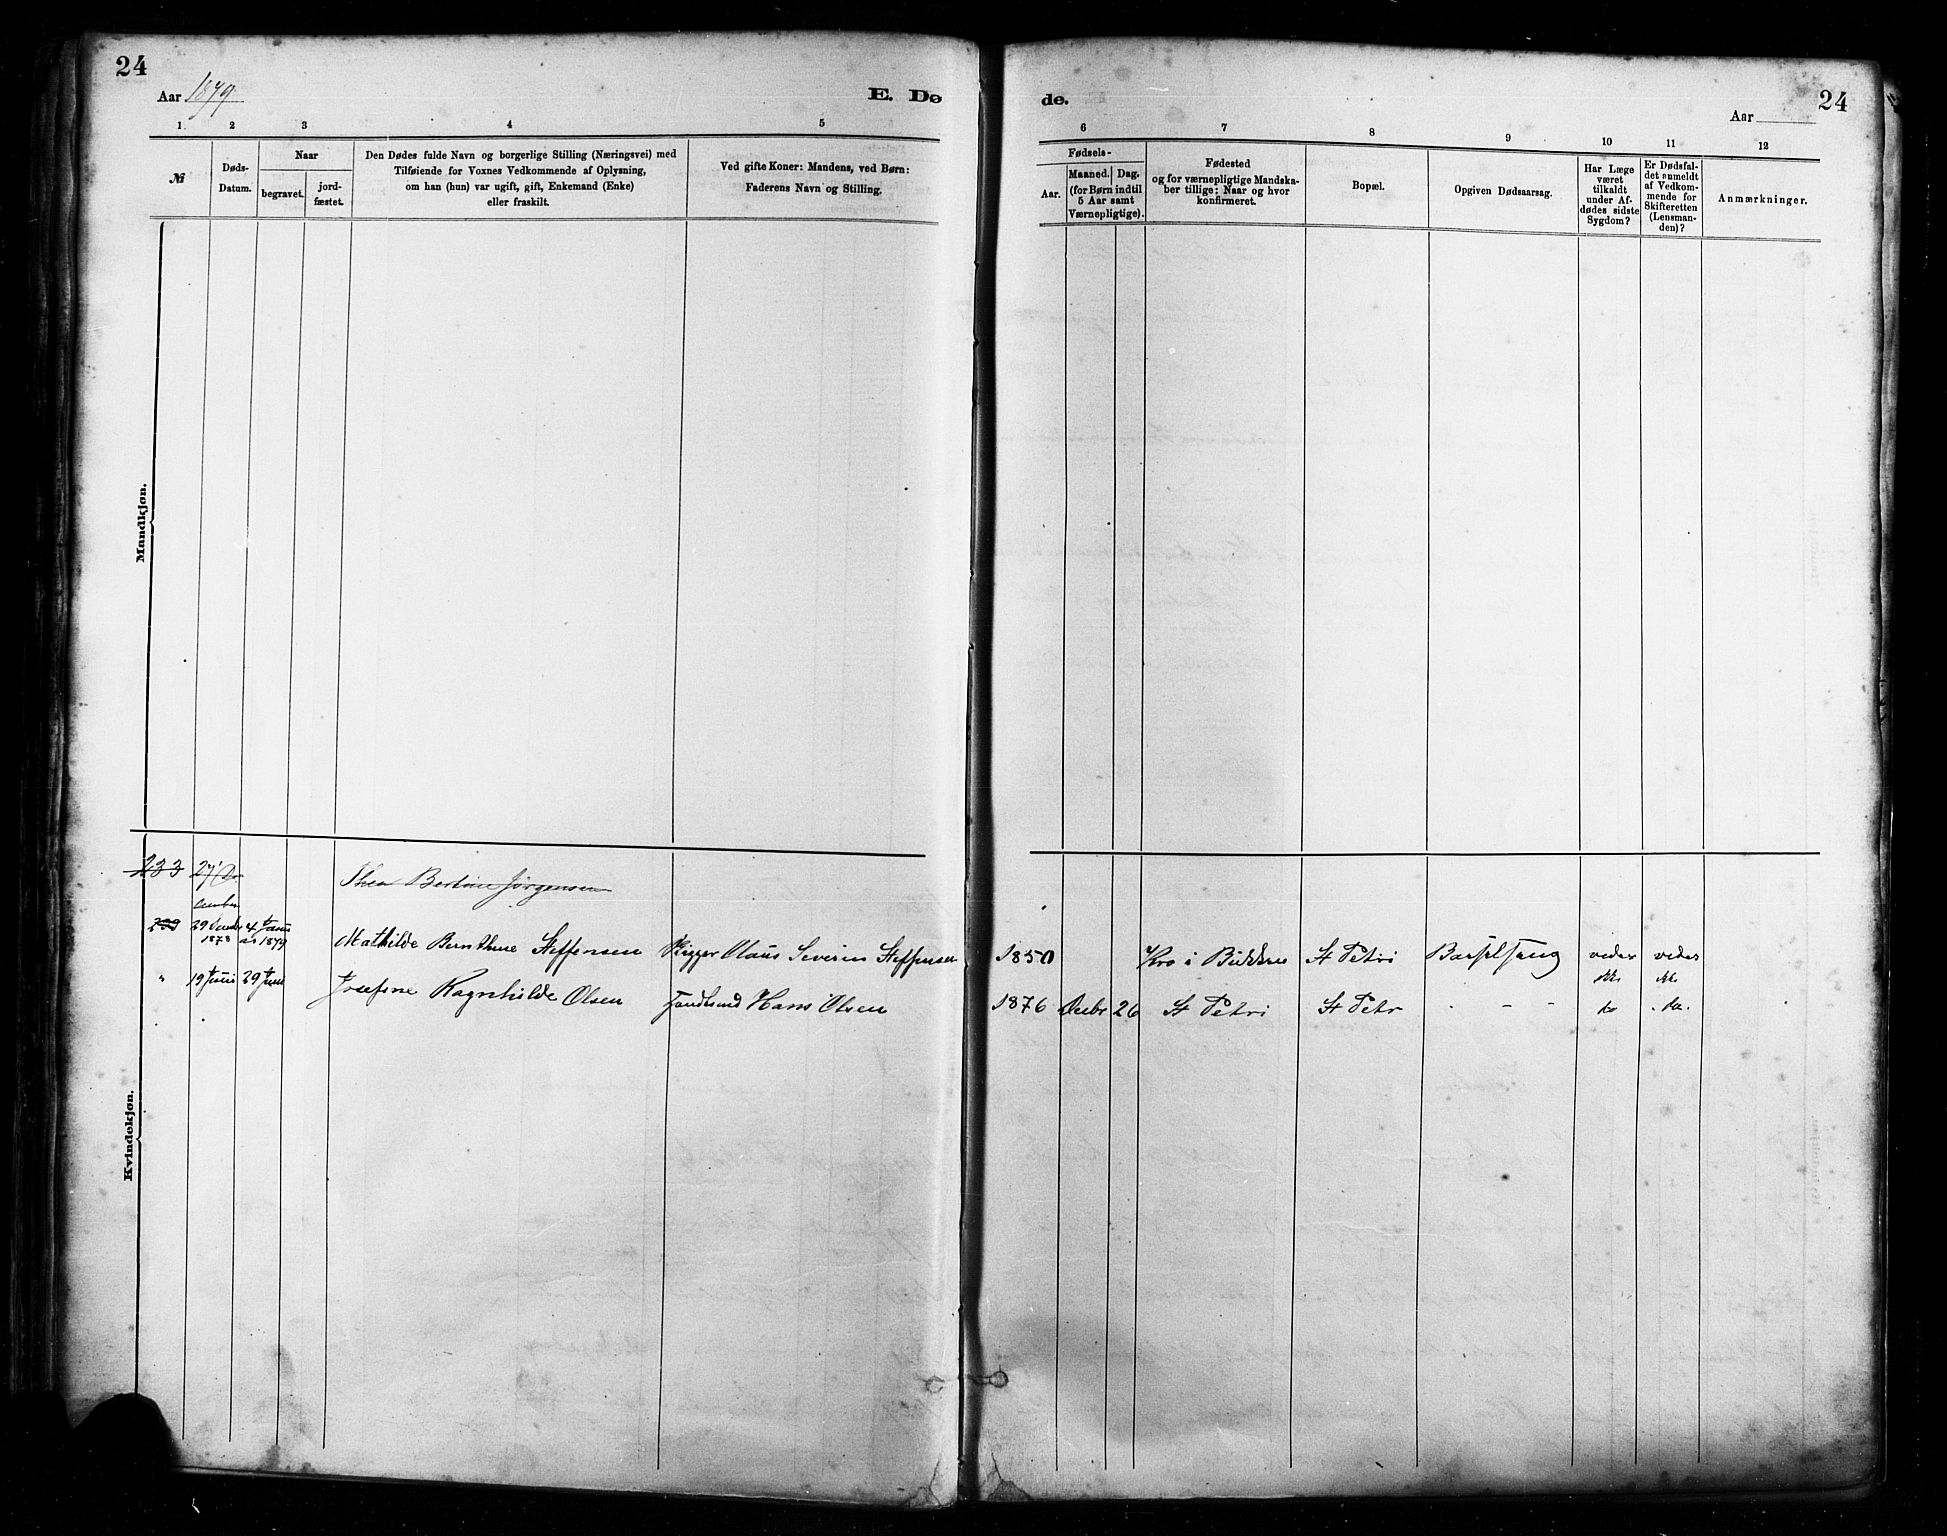 24
Aar 1879
E. Dø
de.
Aar
24
1 2 3 4 5
6 7 8 9 10 11 12
№
Døds-
Datum.
Naar
begravet.
jord-
fæstet.
Den Dødes fulde Navn og borgerlige Stilling (Næringsvei) med
Tilføiende for Voxnes Vedkommende af Oplysning,
om han (hun) var ugift, gift, Enkemand (Enke)
eller fraskilt.
Ved gifte Koner: Mandens, ved Børn:
Faderens Navn og Stilling.
Fødsels-
Aar.
Maaned. Dag.
(for Børn indtil
5 Aar samt
Værnepligtige).
Fødested
og for værnepligtige Mandska-
ber tillige: Naar og hvor
konfirmeret.
Bopæl.
Opgiven Dødsaarsag.
Har Læge
været
tilkaldt
under Af-
dødes sidste
Sygdom?
Er Dødsfal-
det anmeldt
af Vedkom-
mende for
Skifteretten
(Lensman-
den)?
Anmærkninger.
Mandkjøn.
Kvindekjøn.
233 27/ De
cember
Thea Bertine Jørgensen
29 1878 4 1879 Mathilde Steffensen Rigger Claus Severin Steffensen 1850 Kro i St Petri
" 19 Juni 29 Juni Josefine Ragnhilde Olsen Hans Olsen 1876 Decbr 26 St Petri St Petr - - do do.